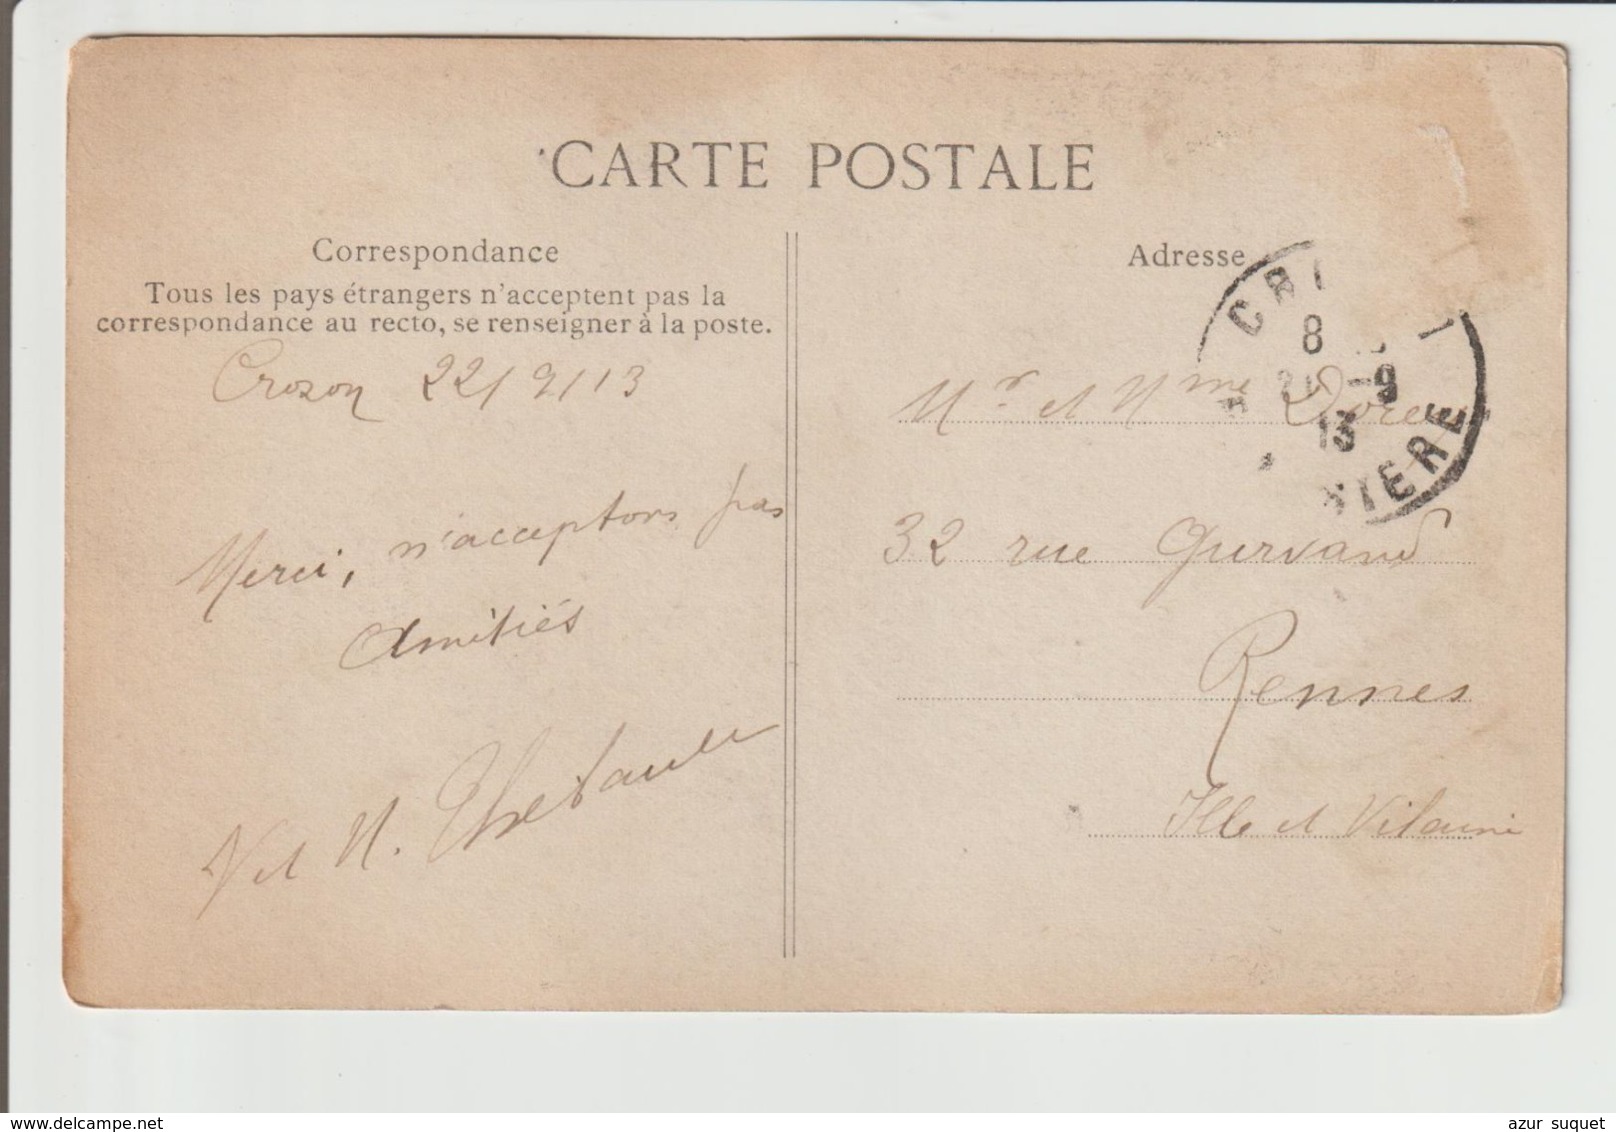 CARTE POSTALE
Correspondance
Tous les pays étrangers n'acceptent pas la
correspondance au recto, se renseigner à la poste.
Crozon 22/9/13
Merci, n'acceptons pas
Amitiés
V et M.
Adresse
8
9
13
Mr et Mme Doré
32 rue Gurvand
Rennes
Ille et Vilaine
azur suquet